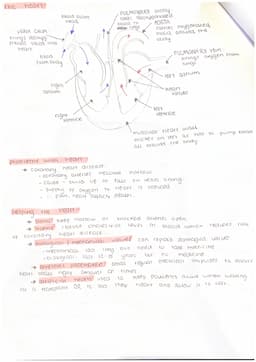 THE HEART
blood from head
PULMONARY artery
takes deoxygenated
blood to lungs
AORTA
carries oxygenated
blood around the
body
VENA CAVA
brings deoxy
blood into the
heart
PULMONARY vein
brings oxygen from
lungs
blood from body
left atrium
heart valves
right atrium
left ventricle
right ventricle
muscular heart wall
thicker on left as has to pump blood
all around the body
problems with heart
→ coronary heart disease
- coronary arteries become narrow
- cause - build up of fat on walls
- supply of oxygen to heart is reduced
- pain, heart attack, death
helping the heart
→ stents: keep narrow or blocked arteries open
→ statins: lower cholesterol levels in blood which reduces risk
of coronary heart disease
→ biological / mechanical valves: can replace damaged valve
- mechanical: last long but need to take medicine
- biological: last 12-15 years but no medicine
→ artificial pacemakers: sends regular electrical impulses to ensure
heart beats
→ artificial hearts: used to keep patients alive when waiting
for a transplant or to help heart rest and allow it to rest